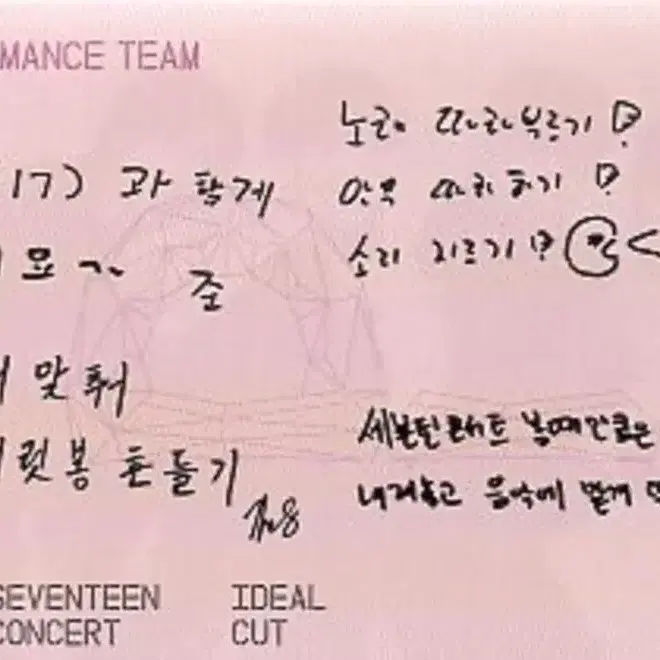 MANCE TEAM
노래 따라부르기!
안무 따라하기!
소리 지르기!?
17) 과 함께
요~
준
맞춰
럿봉 흔들기
The8
세븐틴 콘서트 볼때만큼은
내려놓고 음악에 맡겨
SEVENTEEN
CONCERT
IDEAL
CUT